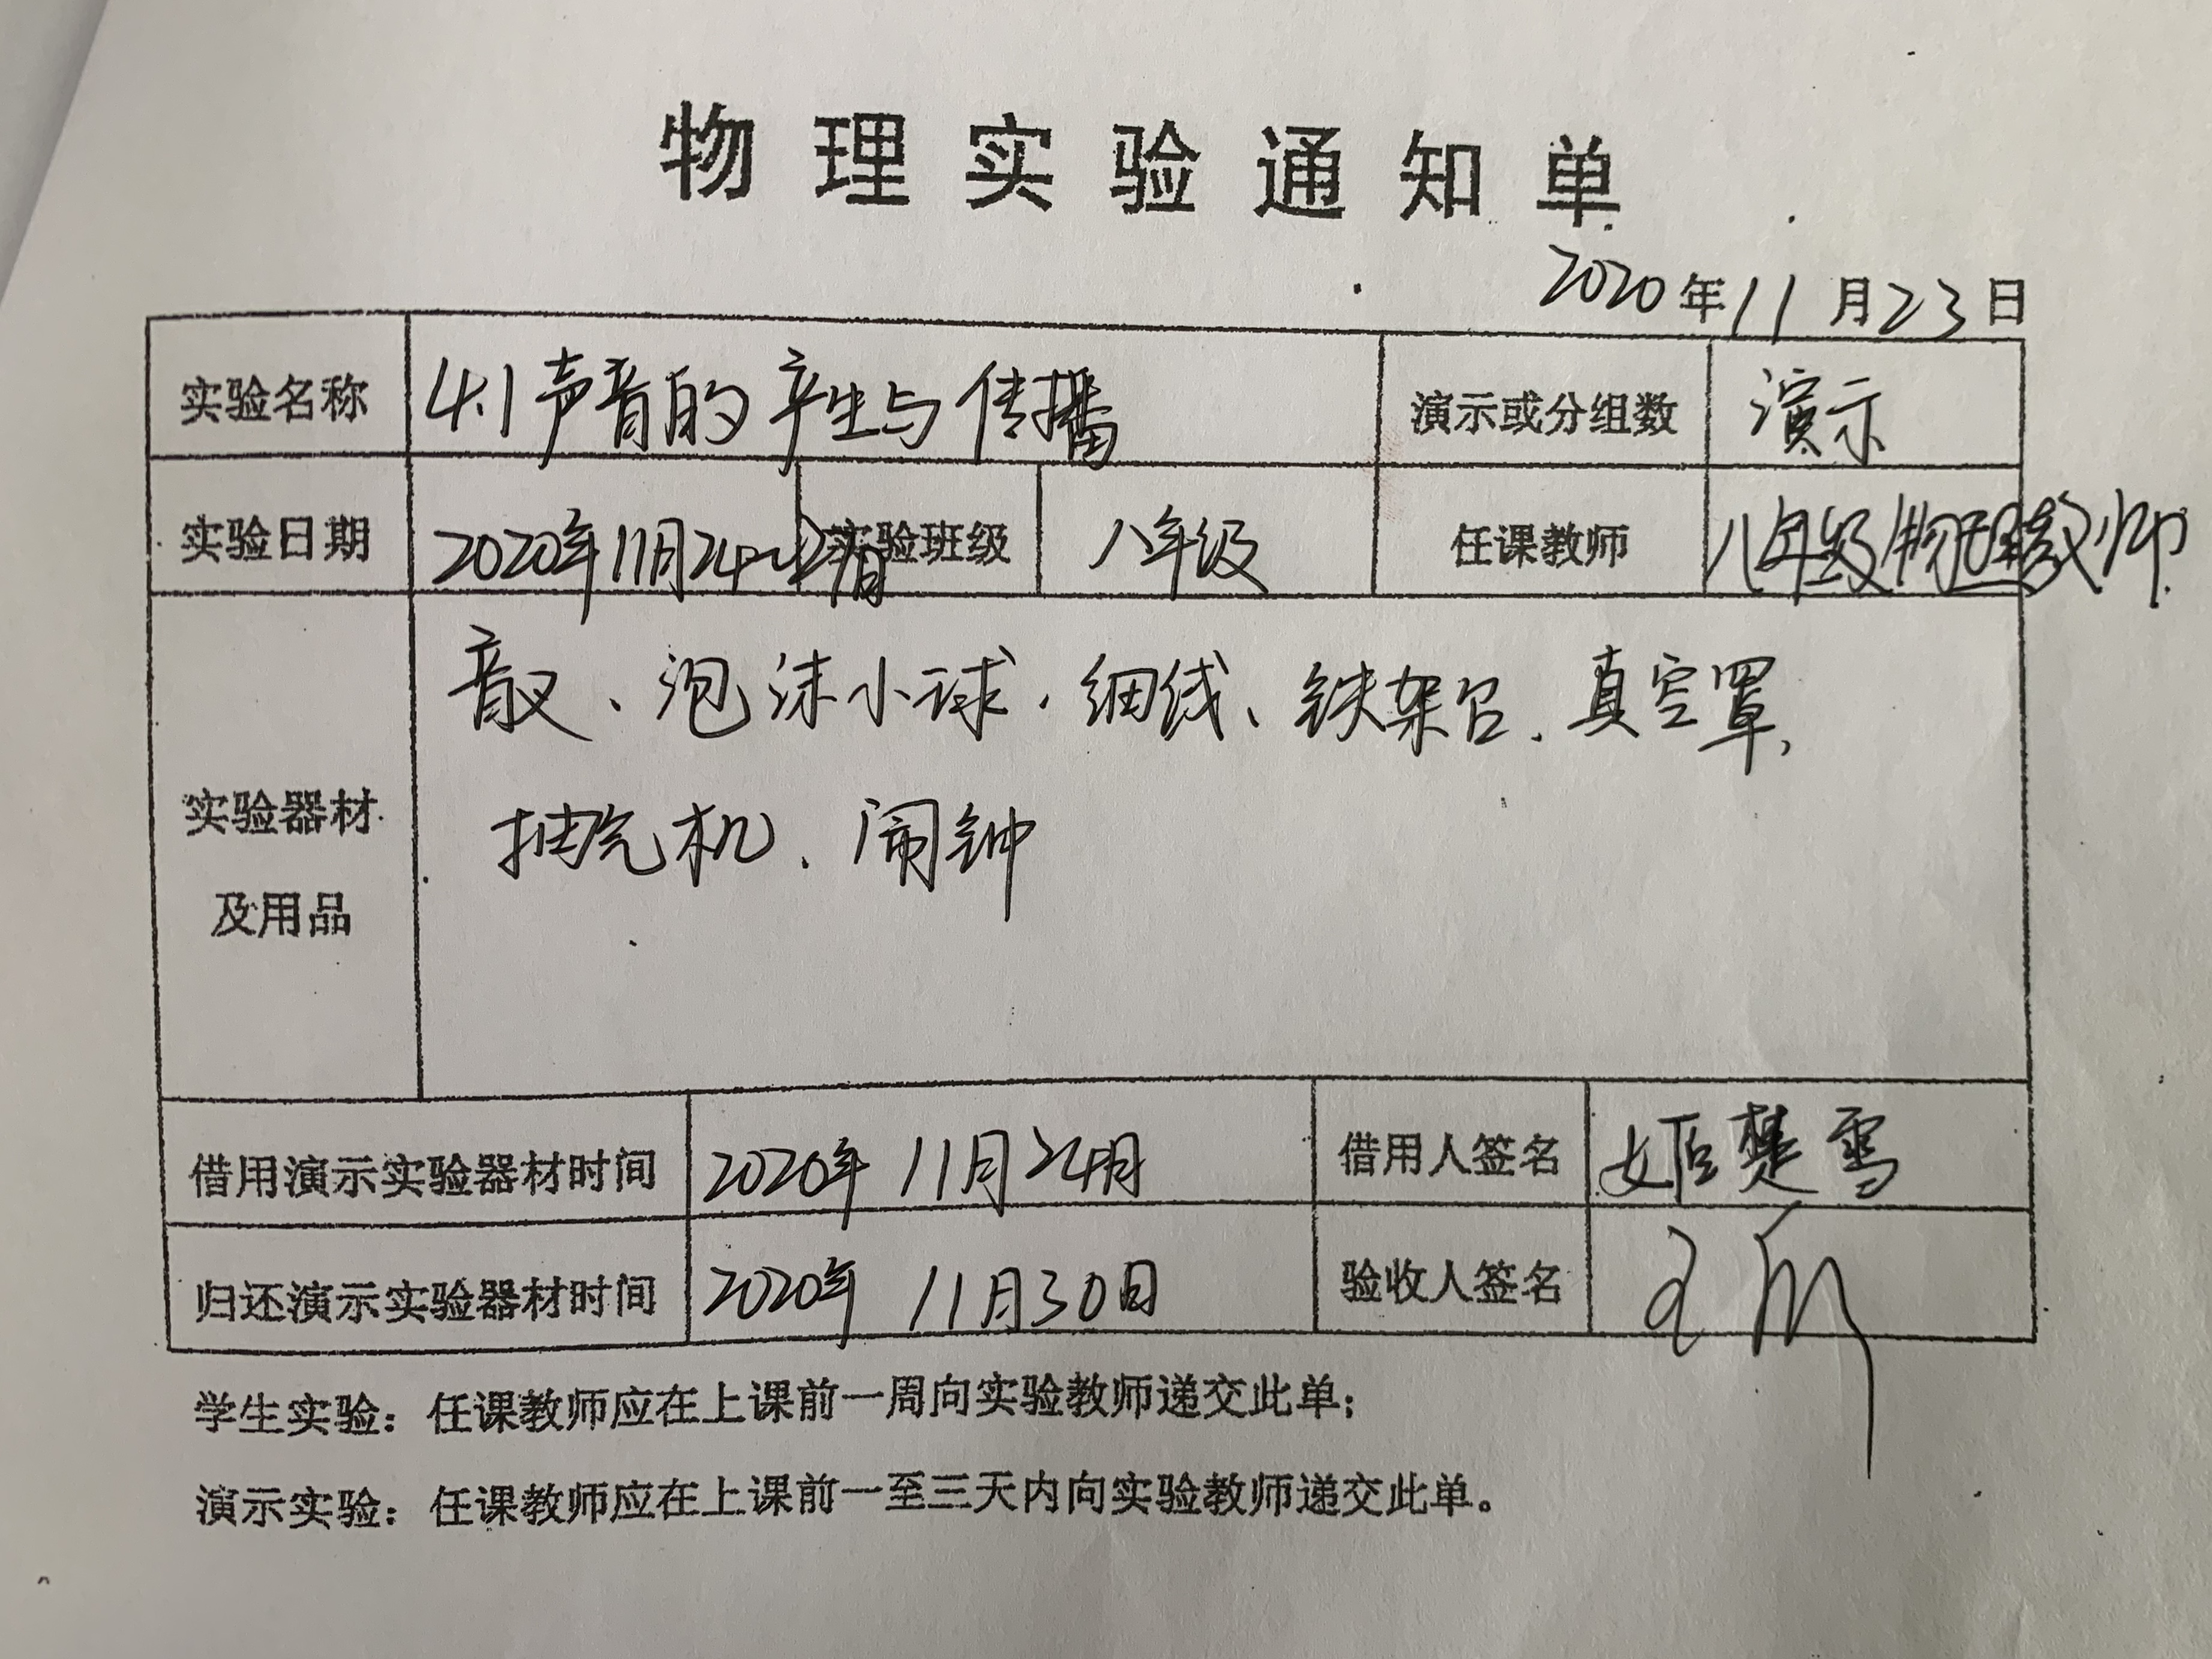 物理实验通知单
2020年11月23日
实验名称 4.1声音的产生与传播 演示或分组数 演示
实验日期 2020年11月24~27日 实验班级 八年级 任课教师 八年级物理教师
音叉、泡沫小球、细线、铁架台、真空罩、
实验器材 抽气机、闹钟
及用品
借用演示实验器材时间 2020年11月24日 借用人签名 姬楚雪
归还演示实验器材时间 2020年11月30日 验收人签名
学生实验：任课教师应在上课前一周向实验教师递交此单；
演示实验：任课教师应在上课前一至三天内向实验教师递交此单。